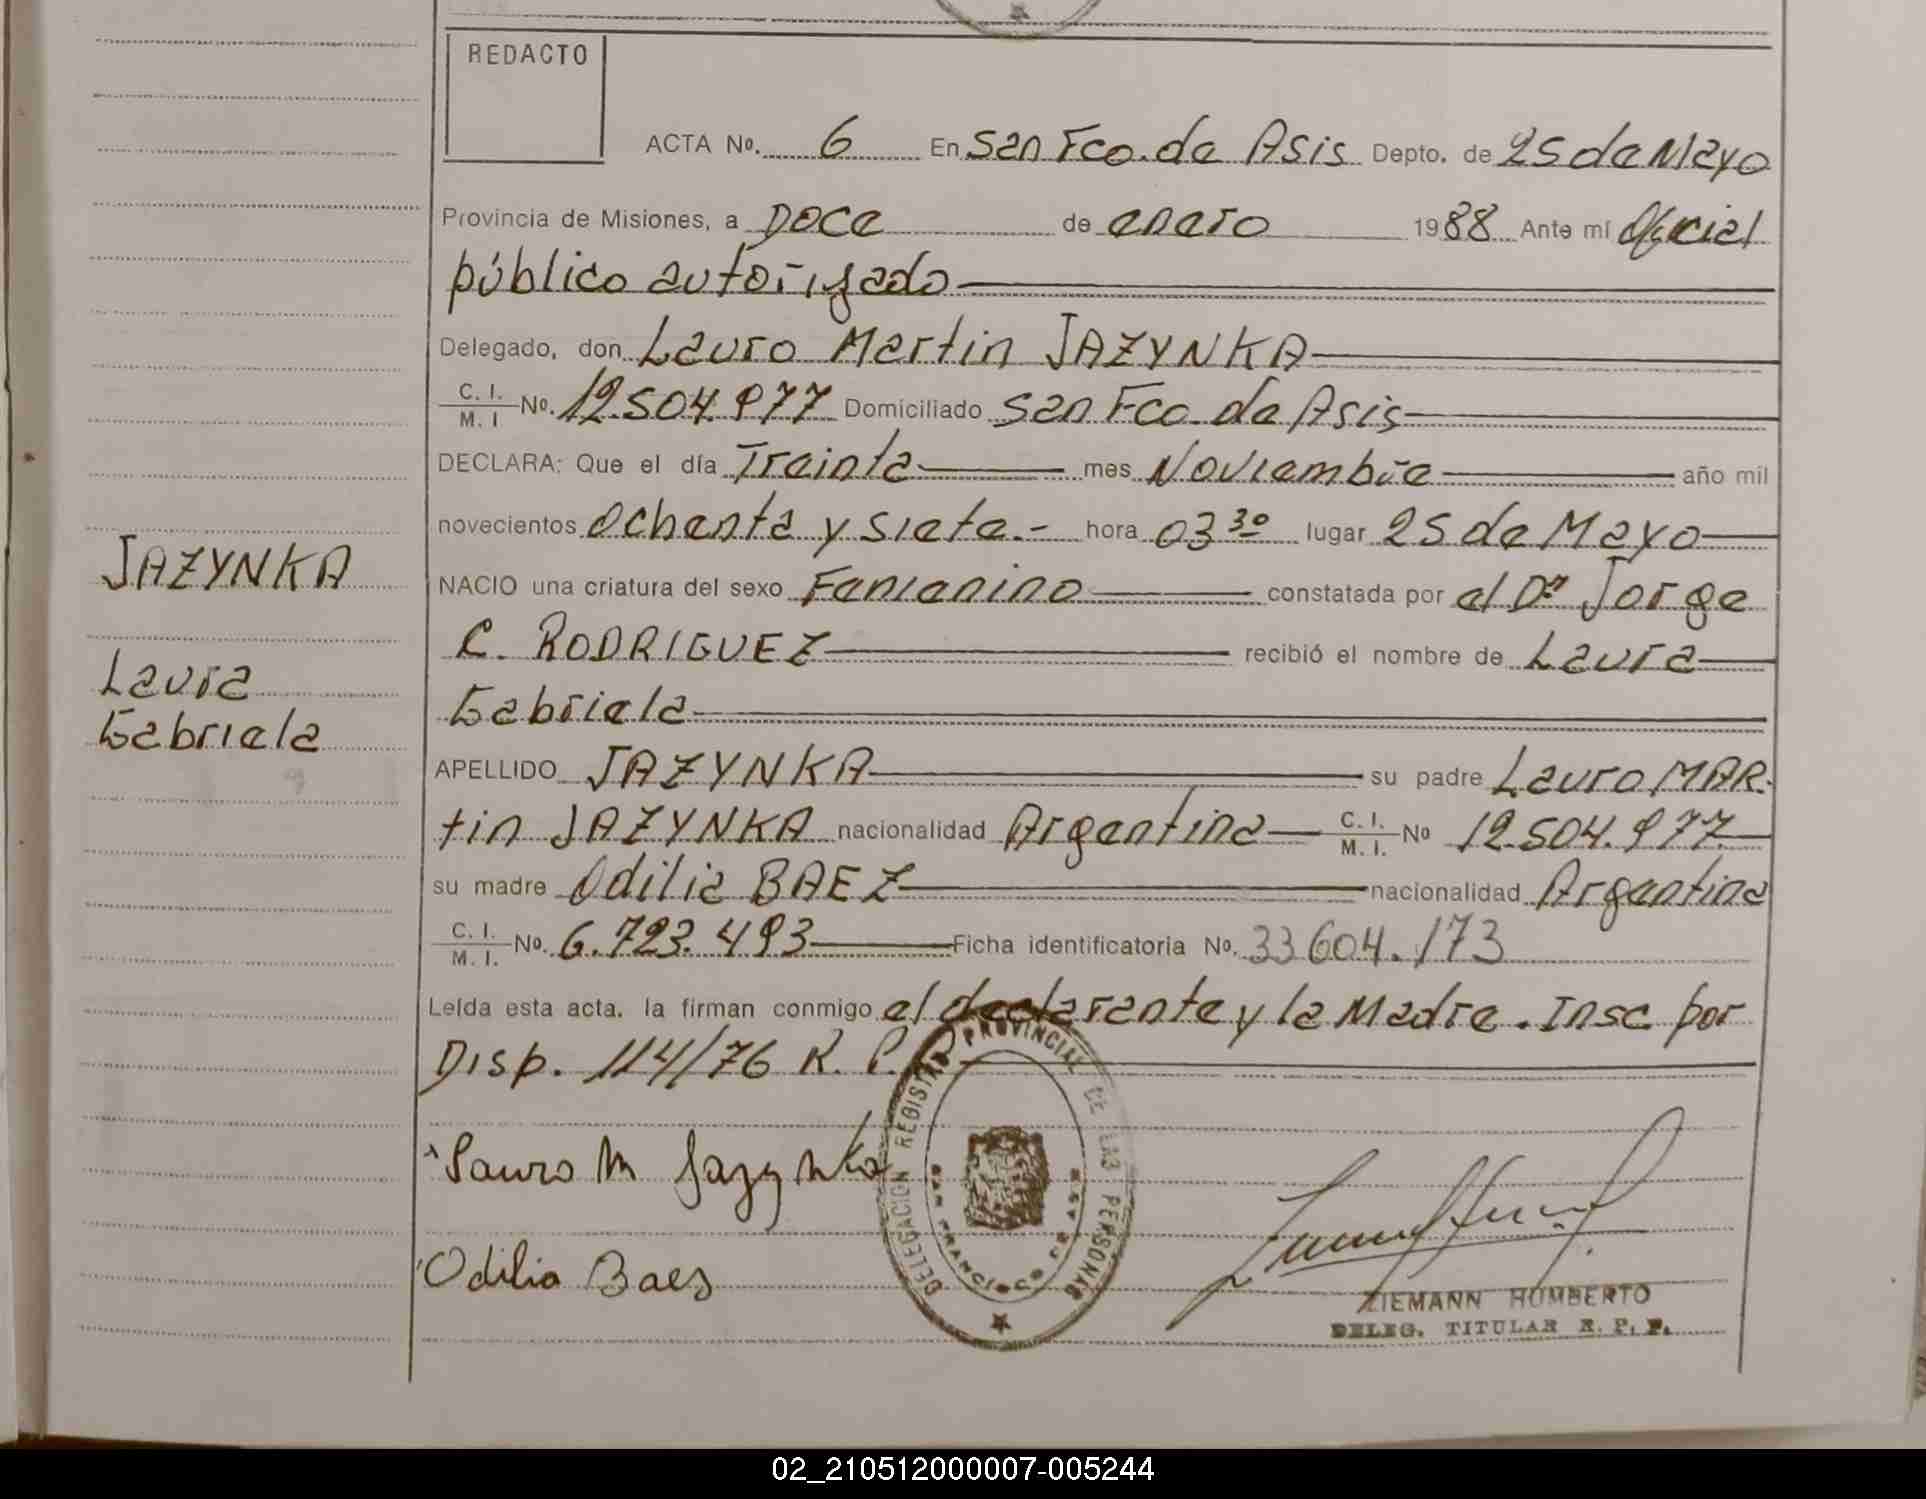 REDACTO
ACTA No. 6 En San Fco. de Asis Depto. de 25 de Mayo
Provincia de Misiones, a Doce de enero 1988 Ante mí Oficial
público autorizado
Delegado, don Lauro Martin JAZYNKA
C. I. M. I No. 12.504.977 Domiciliado San Fco. de Asis
DECLARA: Que el día Treinta mes Noviembre año mil
novecientos Ochenta y siete.- hora 03 30 lugar 25 de Mayo
JAZYNKA
NACIO una criatura del sexo Femenino constatada por el Dr Jorge
C. RODRIGUEZ recibió el nombre de Laura
Laura
Gabriela
Gabriela
APELLIDO JAZYNKA su padre Lauro MAR-
tin JAZYNKA nacionalidad Argentina C. I. M. I. No 12.504.977
su madre Odilia BAEZ nacionalidad Argentina
C. I. M. I. No. 6.723.493 Ficha identificatoria No. 33604.173
Leída esta acta. la firman conmigo el declarante y la Madre. Insc por
Disp. 114/76 R. P.
Lauro M Jazynka
Odilia Baes
DELEGACION REGISTRO PROVINCIAL DE LAS PERSONAS
SAN FRANCISCO DE ASIS
ZIEMANN HUMBERTO
DELEG. TITULAR R. P. P.
02_210512000007-005244